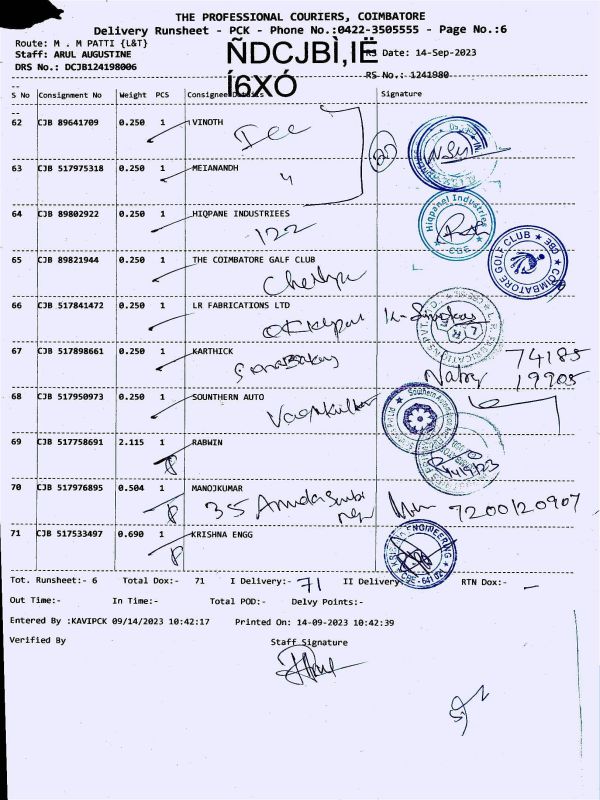 THE PROFESSIONAL COURIERS, COIMBATORE
Delivery Runsheet - PCK - Phone No.:0422-3505555 - Page No.:6
Route: M . M PATTI {L&T}
ÑDCJBÌ,IË
Staff: ARUL AUGUSTINE
RS Date: 14-Sep-2023
DRS No.: DCJB124198006
Í6XÓ
RS No.: 1241980
S No Consignment No Weight PCS Consignee Details Signature
62 CJB 89641709 0.250 1 VINOTH
63 CJB 517975318 0.250 1 MEIANANDH
20
64 CJB 89802922 0.250 1 HIQPANE INDUSTRIEES
122
Hiqpanel Industries
CBE
65 CJB 89821944 0.250 1 THE COIMBATORE GALF CLUB
COIMBATORE GOLF CLUB ★ CBE ★
66 CJB 517841472 0.250 1 LR FABRICATIONS LTD
67 CJB 517898661 0.250 1 KARTHICK
74185
19905
68 CJB 517950973 0.250 1 SOUNTHERN AUTO
69 CJB 517758691 2.115 1 RABWIN
70 CJB 517976895 0.504 1 MANOJKUMAR
35
7200120907
71 CJB 517533497 0.690 1 KRISHNA ENGG
ENGINEERING
CBE - 641 021
Tot. Runsheet:- 6 Total Dox:- 71 I Delivery:- 71 II Delivery:- RTN Dox:- -
Out Time:- In Time:- Total POD:- Delvy Points:-
Entered By :KAVIPCK 09/14/2023 10:42:17 Printed On: 14-09-2023 10:42:39
Verified By Staff Signature